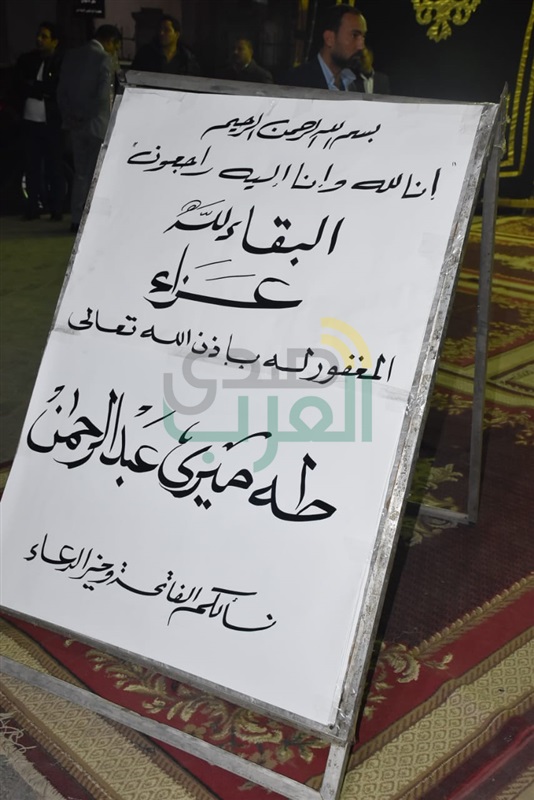 بسم الله الرحمن الرحيم
"إنا لله وإنا إليه راجعون"
البقاء لله
عزاء
المغفور له بإذن الله تعالى
طه صبرى عبد الرحمن
نسألكم الفاتحة وخير الدعاء
صدى
العرب